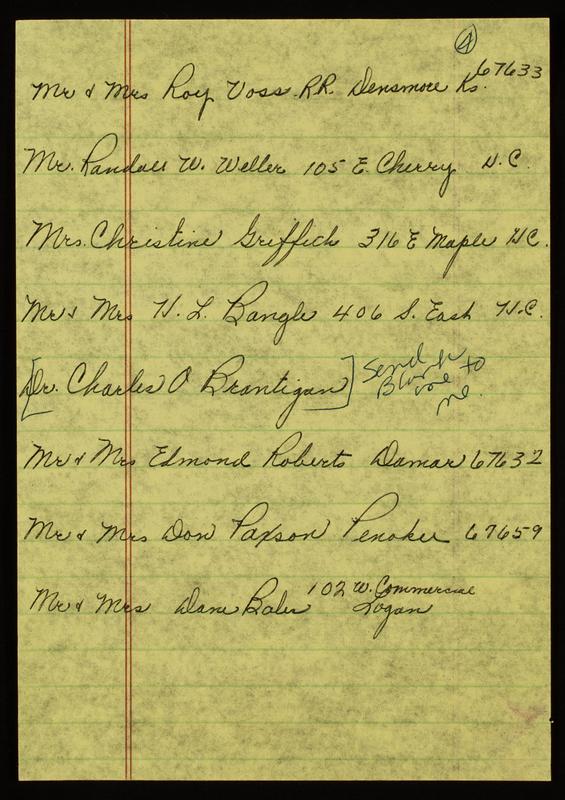 4
67633
Mr & Mrs Roy Voss R.R. Densmore Ks.
Mr. Randall W. Weller 105 E. Cherry H.C.
Mrs. Christine Griffith 316 E Maple H.C.
Mr & Mrs H. L. Bangle 406 S. East H.C.
[Dr. Charles O Brantigan] Send
Blank
one to
me.
Mr & Mrs Edmond Roberts Damar 67632
Mr & Mrs Don Paxson Penokee 67659
102 W. Commercial
Mr & Mrs Dane Bales Logan